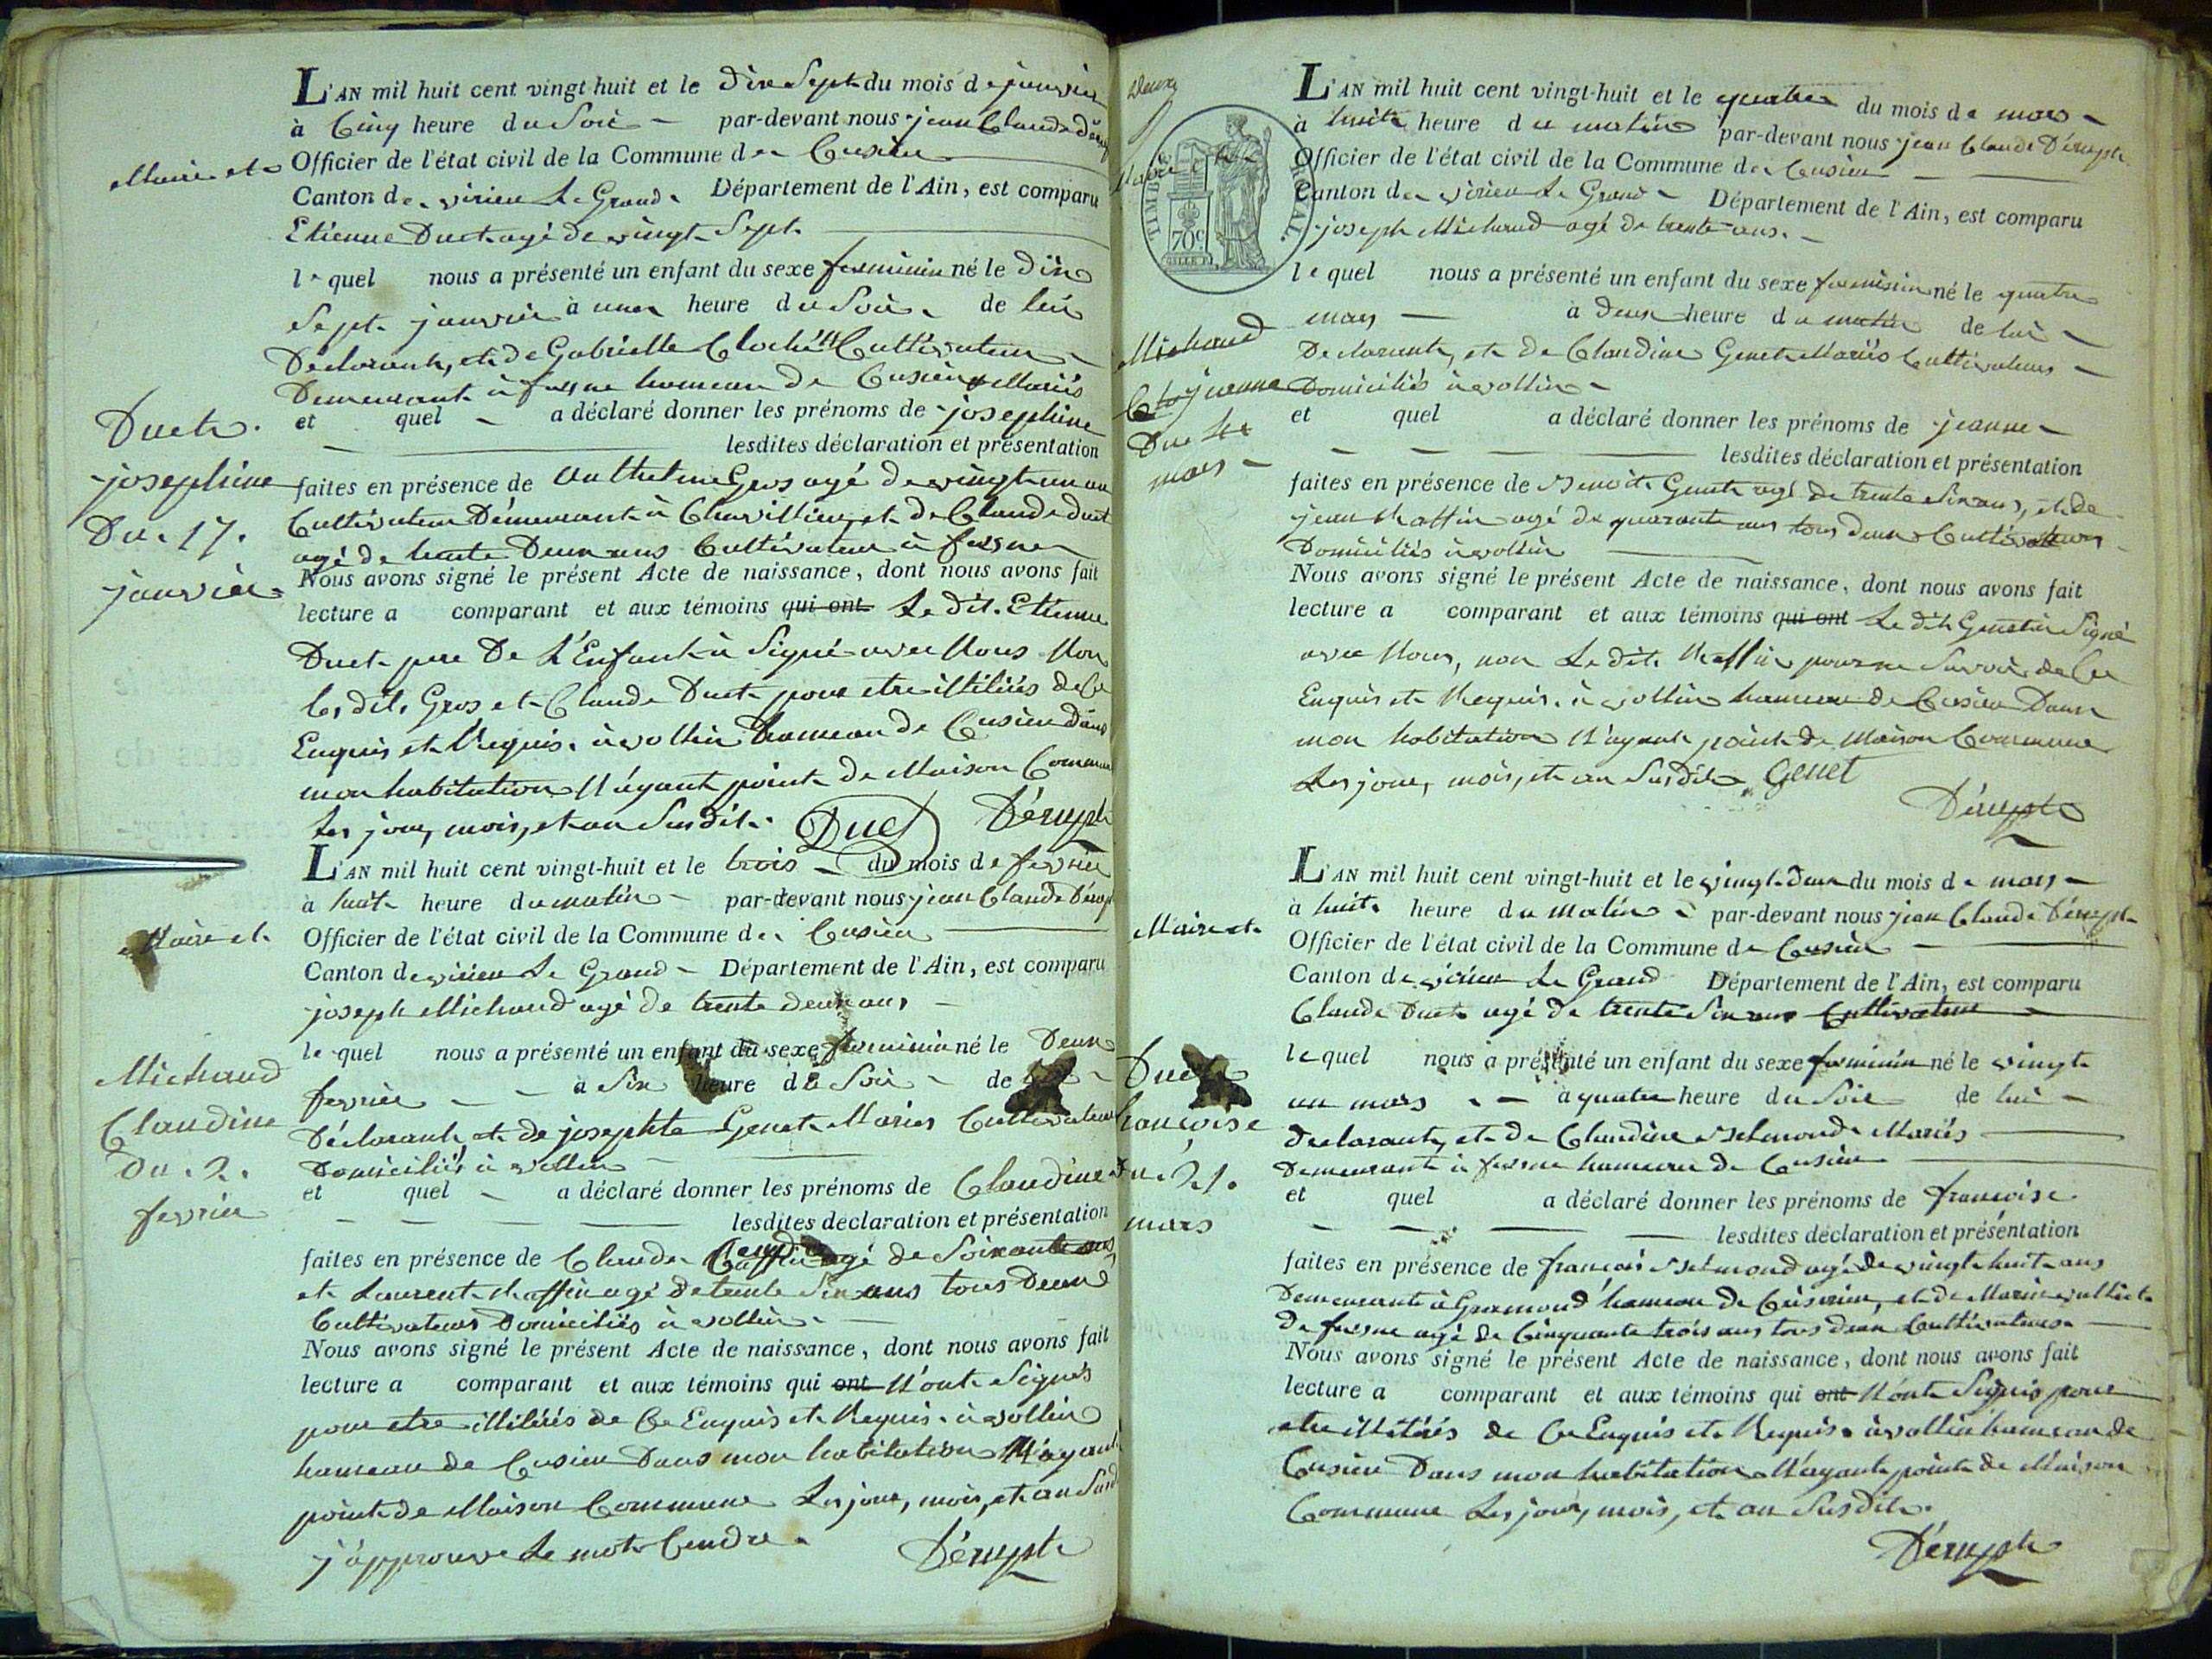 L'AN mil huit cent vingt-huit et le dix Sept du mois de janvier
à Cinq heure du Soir par-devant nous jean Claude
Maire et Officier de l'état civil de la Commune de Cusieu
Canton de virieu Le Grand Département de l'Ain, est comparu
Etienne Duet agé de vingt Sept
le quel nous a présenté un enfant du sexe feminin né le dix
Sept janvier à une heure du Soir de lui
Déclarant, et de Gabrielle Cultivateur
Demeurant à hameau de Cusieu Mariés
et quel a déclaré donner les prénoms de josephine
lesdites déclaration et présentation
faites en présence de Anthelme Gros agé de vingt un an
Cultivateur Demeurant à et de Claude duet
agé de trente Deux ans Cultivateur à
Nous avons signé le présent Acte de naissance, dont nous avons fait
lecture a comparant et aux témoins qui ont Le dit Etienne
Duet pere De L'Enfant à Signé avec Nous Non
les dits Gros et Claude Duet pour etre illitérés de Ce
Enquis et Requis. à vollien hameau de Cusieu dans
mon habitation N'ayant point de Maison Commune
Les jour, mois, et an Susdit. Duet Dérupt
Duet
josephine
Du 17.
janvier
L'AN mil huit cent vingt-huit et le trois du mois de fevrier
à huit heure du matin par-devant nous jean Claude
Maire et Officier de l'état civil de la Commune de Cusieu
Canton de virieu Le Grand Département de l'Ain, est comparu
joseph Michaud agé de trente deux ans
le quel nous a présenté un enfant du sexe feminin né le Deux
fevrier à Six heure du Soir de
Déclarant, et de josephte Genet Mariés Cultivateurs
Domiciliés à vollien
et quel a déclaré donner les prénoms de Claudine
lesdites déclaration et présentation
faites en présence de Claude agé de Soixante ans
et Laurent agé de trente Six ans tous Deux
Cultivateurs Domiciliés à vollien
Nous avons signé le présent Acte de naissance, dont nous avons fait
lecture a comparant et aux témoins qui ont N'ont Signés
pour etre illitérés de Ce Enquis et Requis. à vollien
hameau de Cusieu Dans mon habitation N'ayant
point de Maison Commune Les jour, mois, et an Susd
j'approuve Le mot Dérupt
Michaud
Claudine
Du 2.
fevrier
Deux
TIMBRE ROYAL.
70c
L'AN mil huit cent vingt-huit et le quatre du mois de mars
à huit heure du matin par-devant nous jean Claude Dérupt
Officier de l'état civil de la Commune de Cusieu
Canton de virieu Le Grand Département de l'Ain, est comparu
joseph Michaud agé de trente ans.
le quel nous a présenté un enfant du sexe feminin né le quatre
mars à deux heure du matin de lui
Declarant, et de Claudine Genet Mariés Cultivateurs
Domiciliés à vollien
et quel a déclaré donner les prénoms de jeanne
lesdites déclaration et présentation
faites en présence de Benoit Genet agé de trente Six ans, et de
jean agé de quarante ans tous deux Cultivateurs
Domiciliés à vollien
Nous avons signé le présent Acte de naissance, dont nous avons fait
lecture a comparant et aux témoins qui ont Le dit Genet à Signé
avec Nous, non Le dit pour ne Savoir de Ce
Enquis et Requis. à vollien hameau de Cusieu Dans
mon habitation N'ayant point de Maison Commune
Les jour, mois, et an Susdit. Genet
Dérupt
Michaud
jeanne
Du 4
mars
L'AN mil huit cent vingt-huit et le vingt-deux du mois de mars
à huit heure du Matin par-devant nous jean Claude Dérupt
Maire et Officier de l'état civil de la Commune de Cusieu
Canton de virieu Le Grand Département de l'Ain, est comparu
Claude Duet agé de trente Six ans Cultivateur
le quel nous a présenté un enfant du sexe feminin né le vingt
un mars à quatre heure du Soir de lui
declarant, et de Claudine Mariés
Demeurant à hameau de Cusieu
et quel a déclaré donner les prénoms de francoise
lesdites déclaration et présentation
faites en présence de francois agé de vingt huit ans
Demeurant à hameau de et de
De agé de Cinquante trois ans tous deux Cultivateurs
Nous avons signé le présent Acte de naissance, dont nous avons fait
lecture a comparant et aux témoins qui ont N'ont Signés pour
etre illitérés de Ce Enquis et Requis. à vollien hameau de
Cusieu Dans mon habitation N'ayant point de Maison
Commune Les jour, mois, et an Susdit.
Dérupt
Duet
francoise
Du 21.
mars